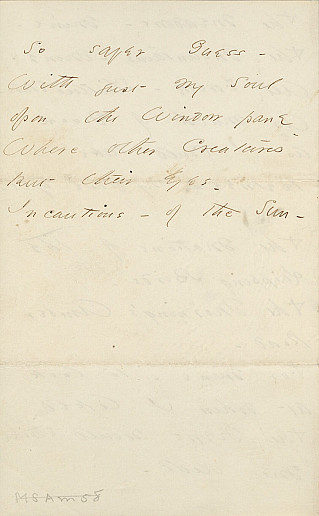 So safer Guess -
With just my soul
Upon the Window pane -
Where other Creatures
put their Eyes -
Incautious - of the Sun -
MS Am 58